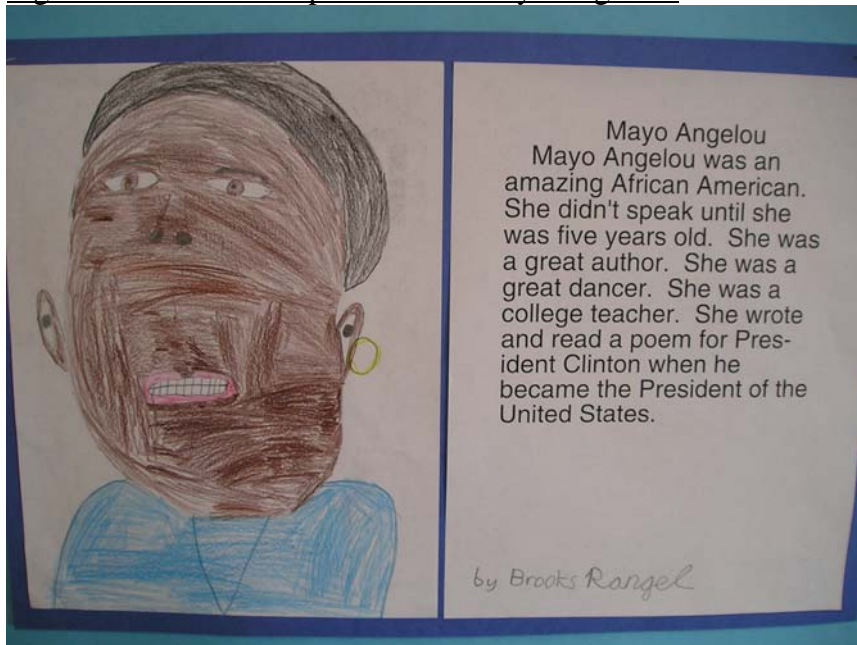 Mayo Angelou
Mayo Angelou was an
amazing African American.
She didn't speak until she
was five years old. She was
a great author. She was a
great dancer. She was a
college teacher. She wrote
and read a poem for Pres-
ident Clinton when he
became the President of the
United States.
by Brooks Rangel